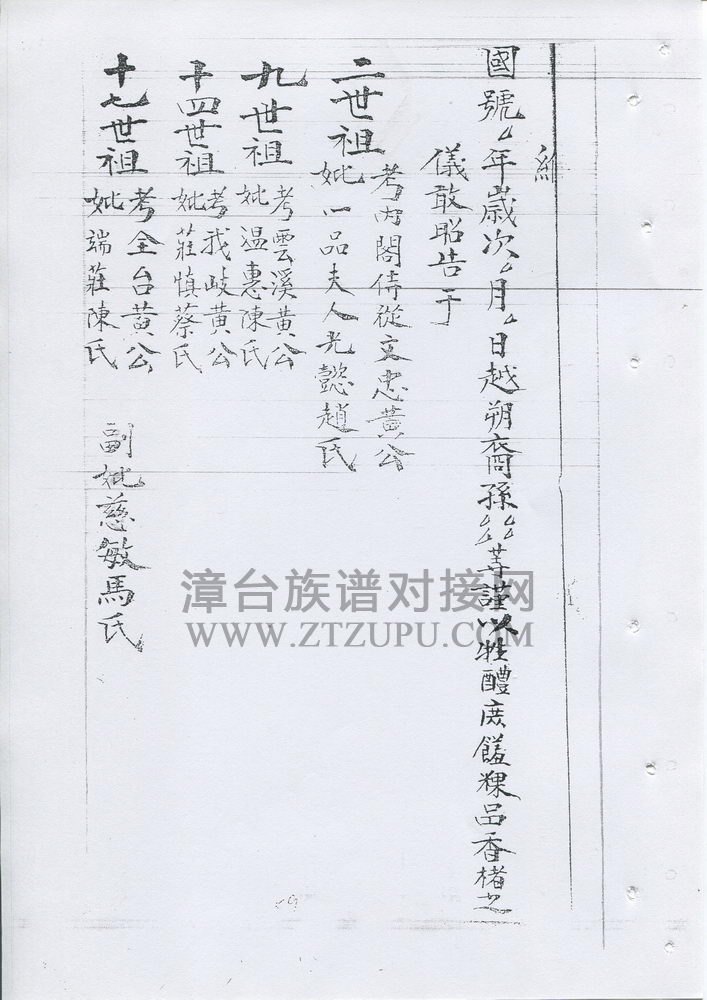 國號年歲次月日越朔裔孫等謹以牲醴庶饈粿品香楮之
儀敢昭告于
二世祖
考內閣侍從文忠黃公
妣一品夫人光懿趙氏
九世祖
考雲溪黃公
妣溫惠陳氏
十四世祖
考我岐黃公
妣莊慎蔡氏
十七世祖
考全台黃公
妣端莊陳氏
副妣慈敏馬氏
漳台族谱对接网
WWW.ZTZUPU.COM